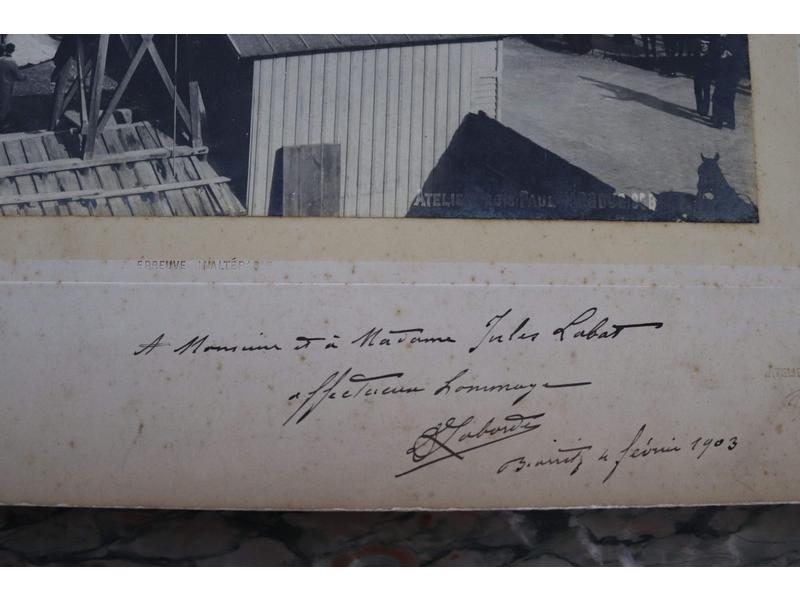 ATELIE PAUL
ÉPREUVE INALTÉRABLE
A Monsieur et à Madame Jules Labat
affectueux hommage
Laborde
Biarritz 4 février 1903
ATELIE